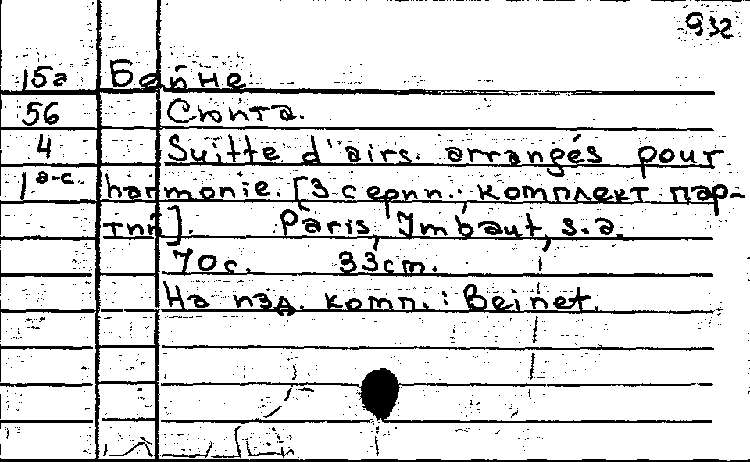 932
15а Бейне
56 Сюита.
4 Suitte d'airs. arrangés pour
1 а-с. harmonie. [3 серии.; комплект пар-
тий]. Paris, Imbaut, s.a.
70с. 33cm.
На изд. комп.: Beinet.